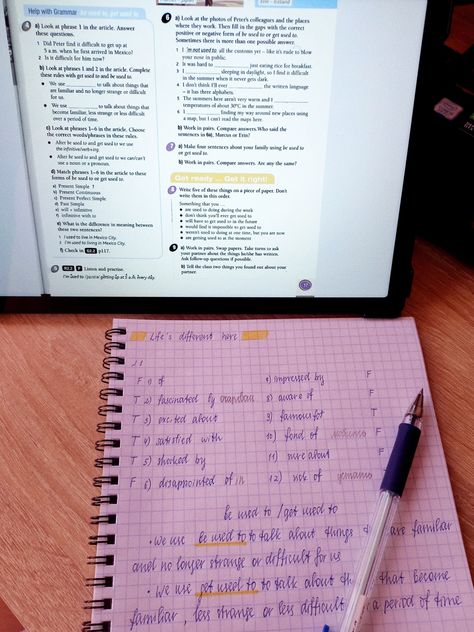 Help with Grammar be used to, get used to
5 a) Look at phrase 1 in the article. Answer
these questions.
1 Did Peter find it difficult to get up at
5 a.m. when he first arrived in Mexico?
2 Is it difficult for him now?
b) Look at phrases 1 and 2 in the article. Complete
these rules with get used to and be used to.
We use ______ to talk about things that
are familiar and no longer strange or difficult
for us.
We use ______ to talk about things that
become familiar, less strange or less difficult
over a period of time.
c) Look at phrases 1–6 in the article. Choose
the correct words/phrases in these rules.
After be used to and get used to we use
the infinitive/verb+ing.
After be used to and get used to we can/can't
use a noun or a pronoun.
d) Match phrases 1–6 in the article to these
forms of be used to or get used to.
a) Present Simple 1
b) Present Continuous
c) Present Perfect Simple
d) Past Simple
e) will + infinitive
f) infinitive with to
e) What is the difference in meaning between
these two sentences?
1 I used to live in Mexico City.
2 I'm used to living in Mexico City.
f) Check in p117.
P Listen and practise.
I'm used to getting up at 5 a.m. every day.
6 a) Look at the photos of Peter's colleagues and the places
where they work. Then fill in the gaps with the correct
positive or negative form of be used to or get used to.
Sometimes there is more than one possible answer.
1 I 'm not used to all the customs yet – like it's rude to blow
your nose in public.
2 It was hard to ______ just eating rice for breakfast.
3 I ______ sleeping in daylight, so I find it difficult
in the summer when it never gets dark.
4 I don't think I'll ever ______ the written language
– it has three alphabets.
5 The summers here aren't very warm and I ______
temperatures of about 30°C in the summer.
6 I ______ finding my way around new places using
a map, but I can't read the maps here.
b) Work in pairs. Compare answers. Who said the
sentences in 6a), Marcus or Erin?
7 a) Make four sentences about your family using be used to
or get used to.
b) Work in pairs. Compare answers. Are any the same?
Get ready ... Get it right!
8 Write five of these things on a piece of paper. Don't
write them in this order.
Something that you ...
are used to doing during the week
don't think you'll ever get used to
will have to get used to in the future
would find it impossible to get used to
weren't used to doing at one time, but you are now
are getting used to at the moment
9 a) Work in pairs. Swap papers. Take turns to ask
your partner about the things he/she has written.
Ask follow-up questions if possible.
b) Tell the class two things you found out about your
partner.
17
Life's different here
F 1) of
T 2) fascinated by
T 3) excited about
T 4) satisfied with
T 5) shocked by
F 6) disappointed of in
impressed by F
8) aware of F
9) famous for T
10) fond of F
11) sure about F
12) sick of F
be used to / get used to
· We use be used to to talk about things are familiar
and no longer strange or difficult for us
· We use get used to to talk about that become
familiar, less strange or less difficult a period of time